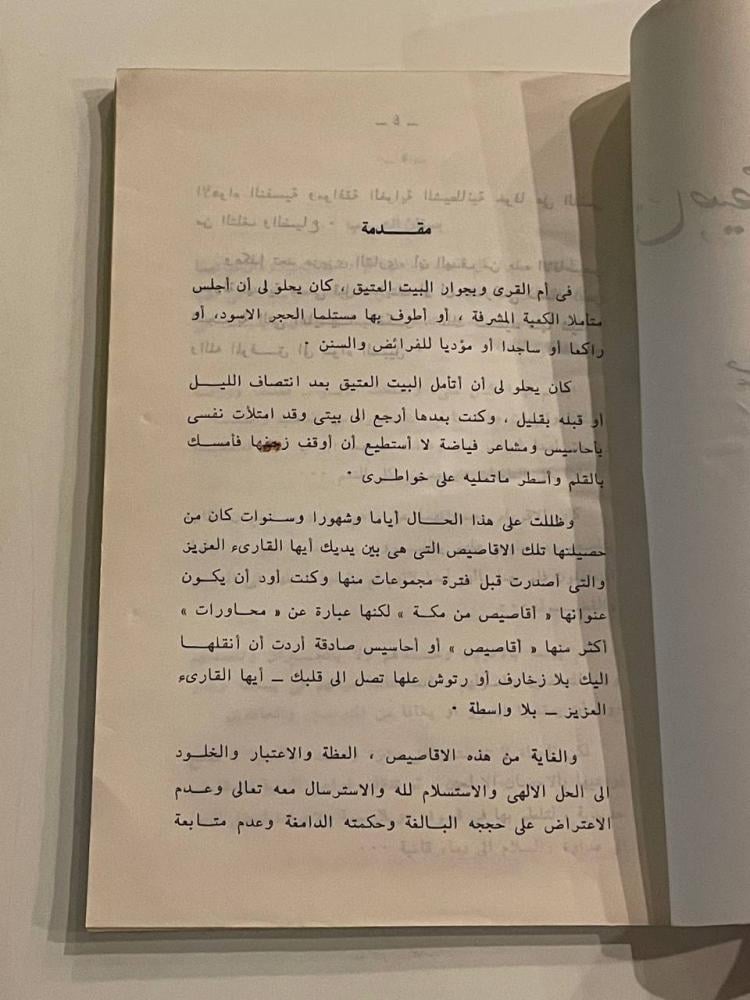 مقـــدمة
فى أم القرى وبجوار البيت العتيق ، كان يحلو لى أن أجلس
متأملا الكعبة المشرفة ، أو أطوف بها مستلما الحجر الاسود، أو
راكعا أو ساجدا أو مؤديا للفرائض والسنن ٠
كان يحلو لى أن أتأمل البيت العتيق بعد انتصاف الليـــل
أو قبله بقليل ، وكنت بعدها أرجع الى بيتى وقد امتلأت نفسى
بأحاسيس ومشاعر فياضة لا أستطيع أن أوقف زحفها فأمسـك
بالقلم وأسطر ماتمليه على خواطـرى ٠
وظللت على هذا الحـــال أياما وشهورا وسـنوات كان من
حصيلتها تلك الاقاصيص التى هى بين يديك أيها القارىء العزيز
والتى أصدرت قبل فترة مجموعات منها وكنت أود أن يكـون
عنوانها « أقاصيص من مكـة » لكنها عبارة عن « محـاورات »
أكثر منها « أقاصيص » أو أحاسيس صادقة أردت أن أنقلهــا
اليك بلا زخارف أو رتوش علها تصل الى قلبك ـ أيها القارىء
العزيز ـ بلا واسطة ٠
والغاية من هذه الاقاصيص ، العظة والاعتبار والخلـود
الى الحل الالهى والاستسلام لله والاسترسال معه تعالى وعـدم
الاعتراض على حججه البـالغة وحكمته الدامغة وعدم متـابعة